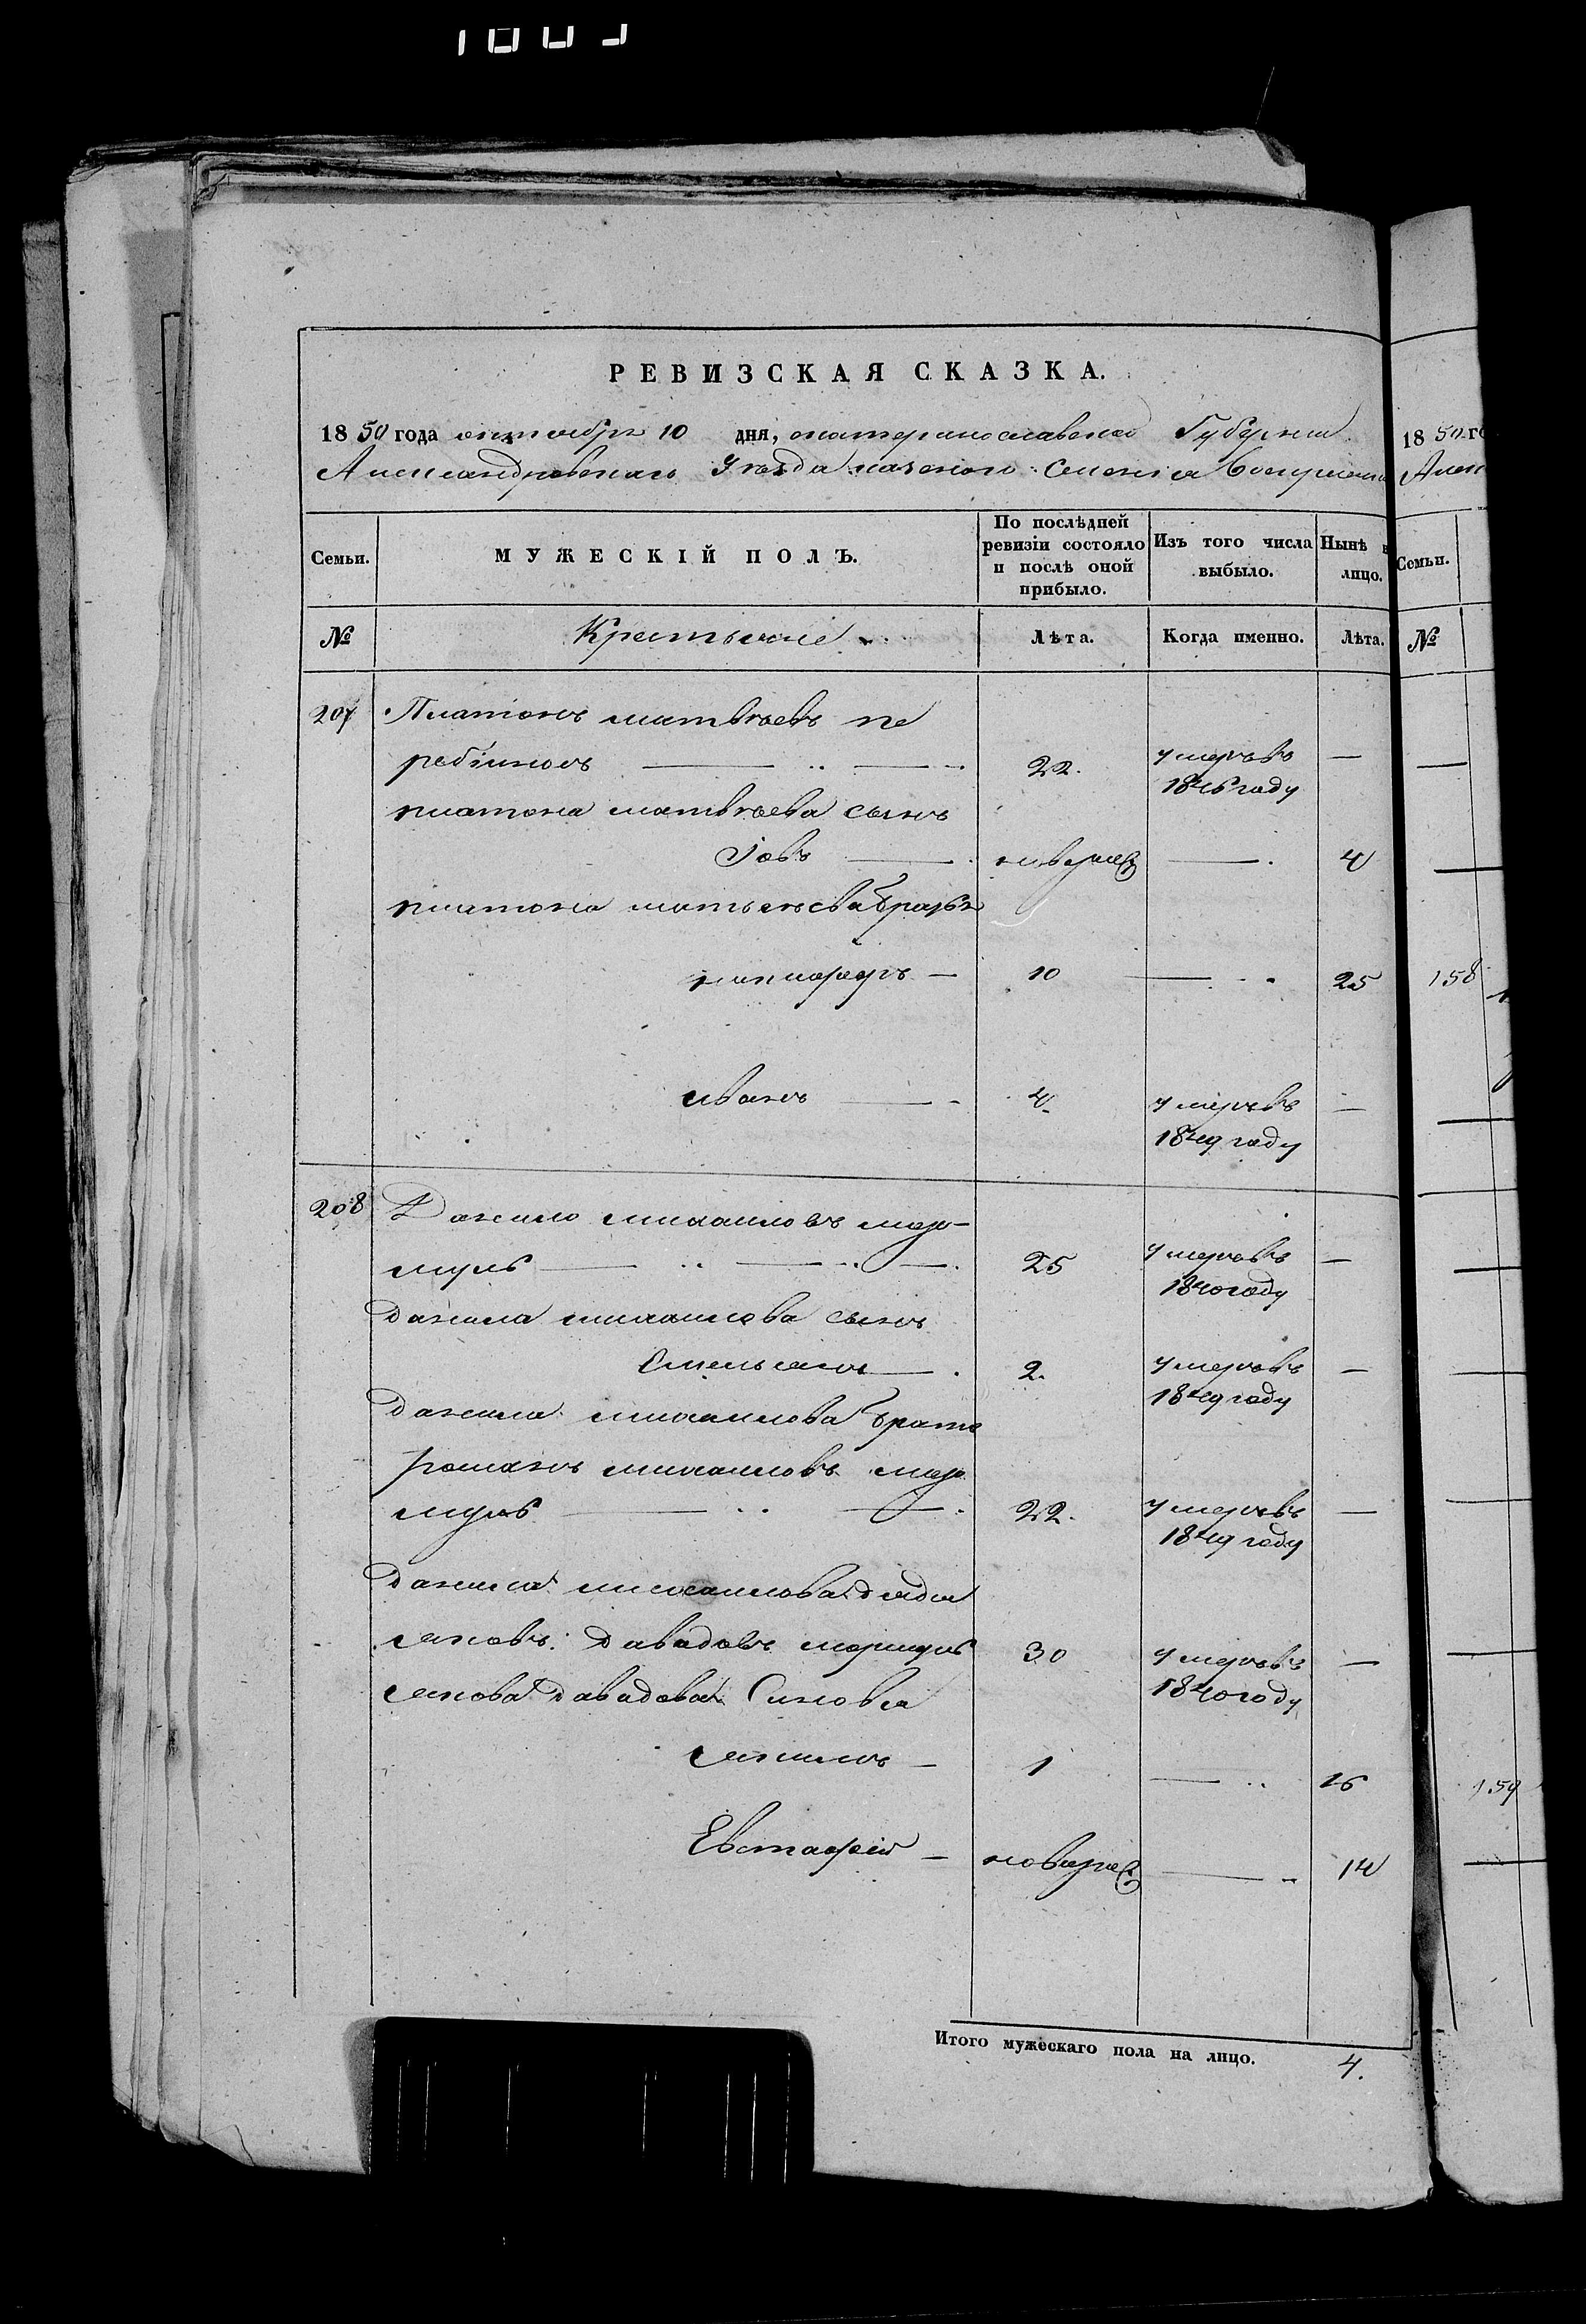 РЕВИЗСКАЯ СКАЗКА.
1850 года октября 10 дня, екатеринославской Губернии
Александровскаго Уезда казеннаго Селения
Семьи.
МУЖЕСКІЙ ПОЛЪ.
По послѣдней ревизіи состояло и послѣ оной прибыло.
Изъ того числа выбыло.
Нынѣ лицо.
№
Крестьяне
Лѣта.
Когда именно.
Лѣта.
207 Платонъ матвеевъ пе
22. умеръ въ —
1846 году
платона матвеева сынъ
Іовъ — — 4
платона братья
никифоръ — 10 — 25
иванъ — 4. умеръ въ —
1849 году
208 Данило михаиловъ
25 умеръ въ —
1840 году
Данила михаилова сынъ
Емельянъ — 2. умеръ въ —
1849 году
Данила михаилова братъ
романъ михаиловъ
22. умеръ въ —
1849 году
Данила михаилова дядя
яковъ Давидовъ 30 умеръ въ —
1840 году
якова Давидова Синовья
1 — 16
Евстафій — — 14
Итого мужескаго пола на лицо. 4.
1850 го
Семьи.
№
158
159